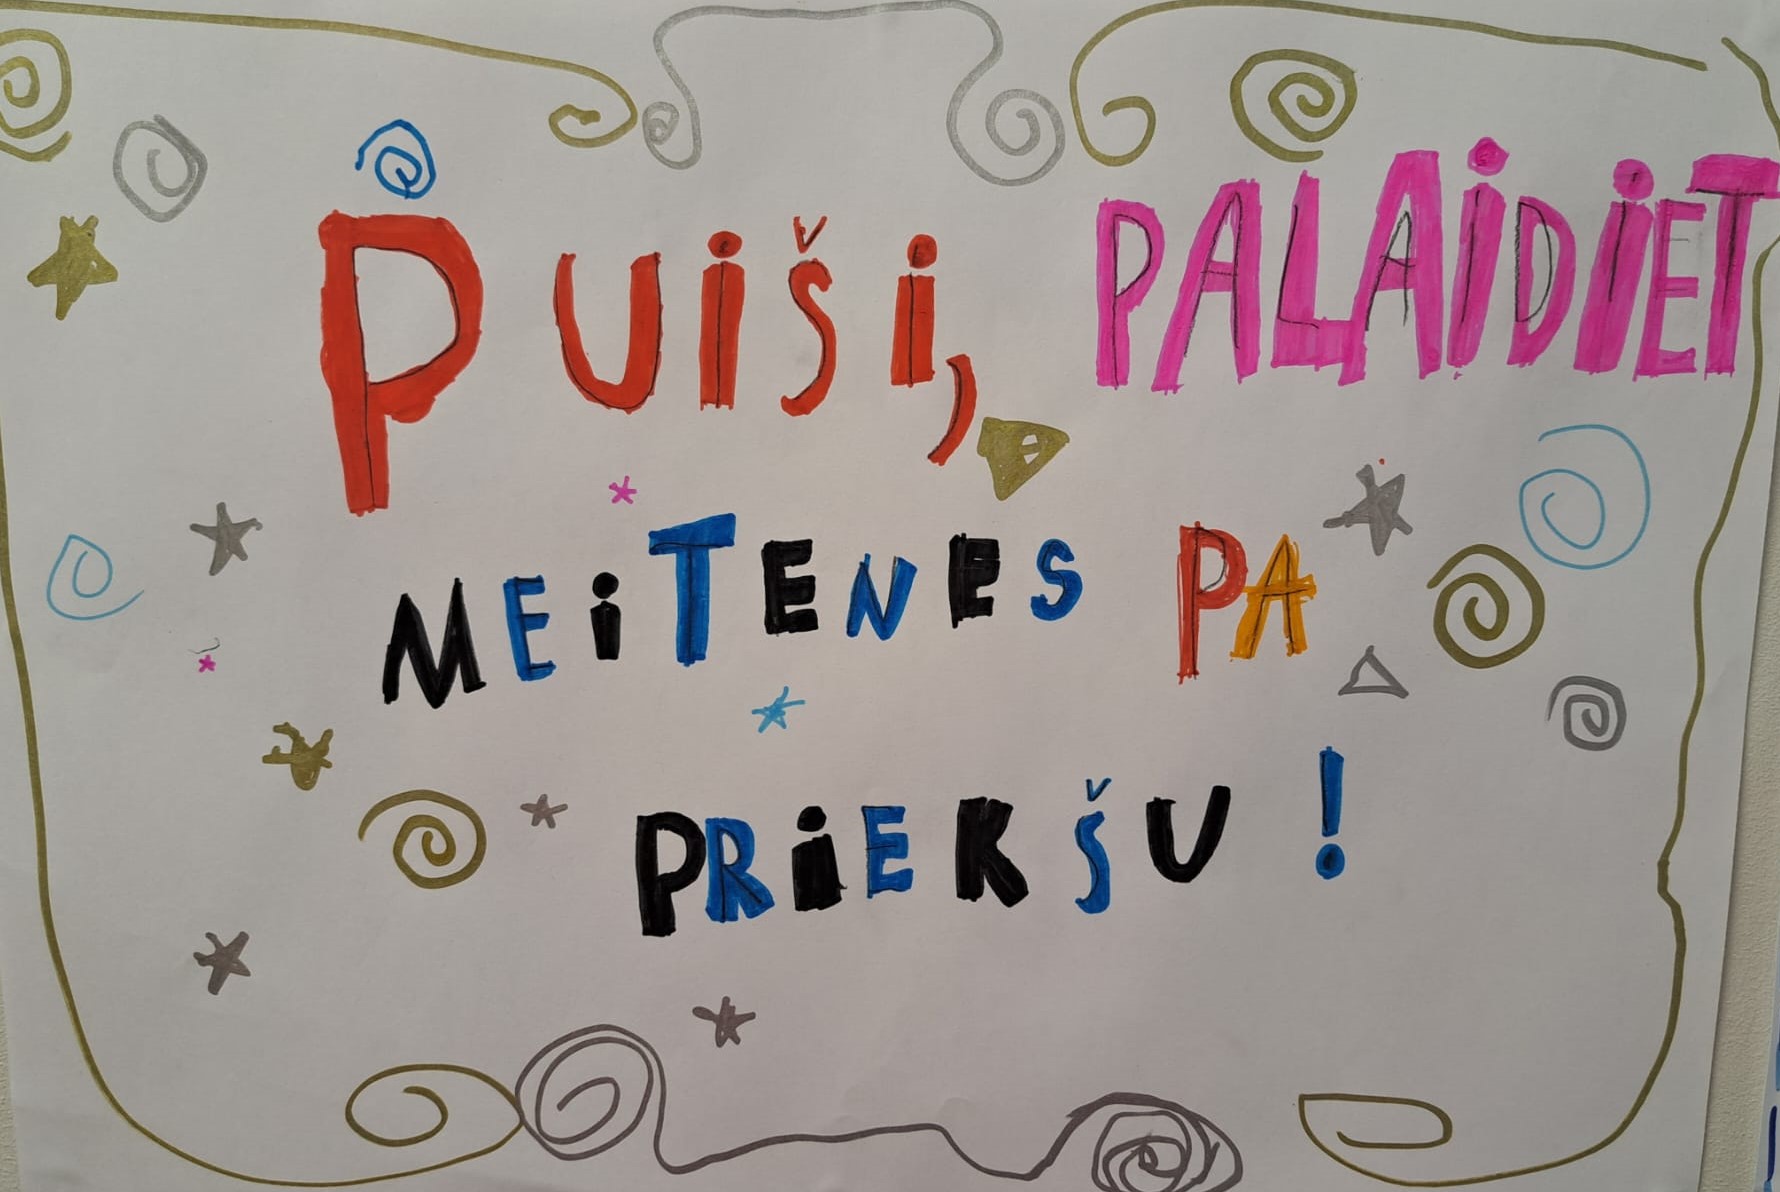 PUiŠi, PALAiDiET
MEiTENES PA
PRiEKŠU!